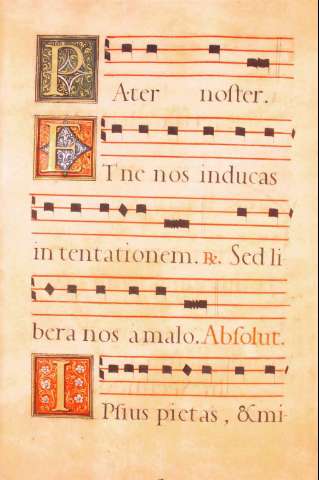 PAter noster.
ETne nos inducas
in tentationem. ℟. Sed li
bera nos a malo. Absolut.
IPsius pietas, & mi-